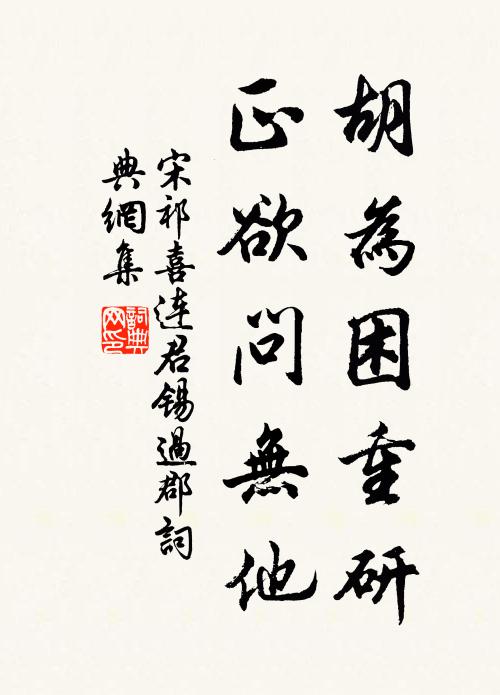 胡為困重研
正欲問無他
宋祁喜連君錫過郡詞
典網集
詞典網印